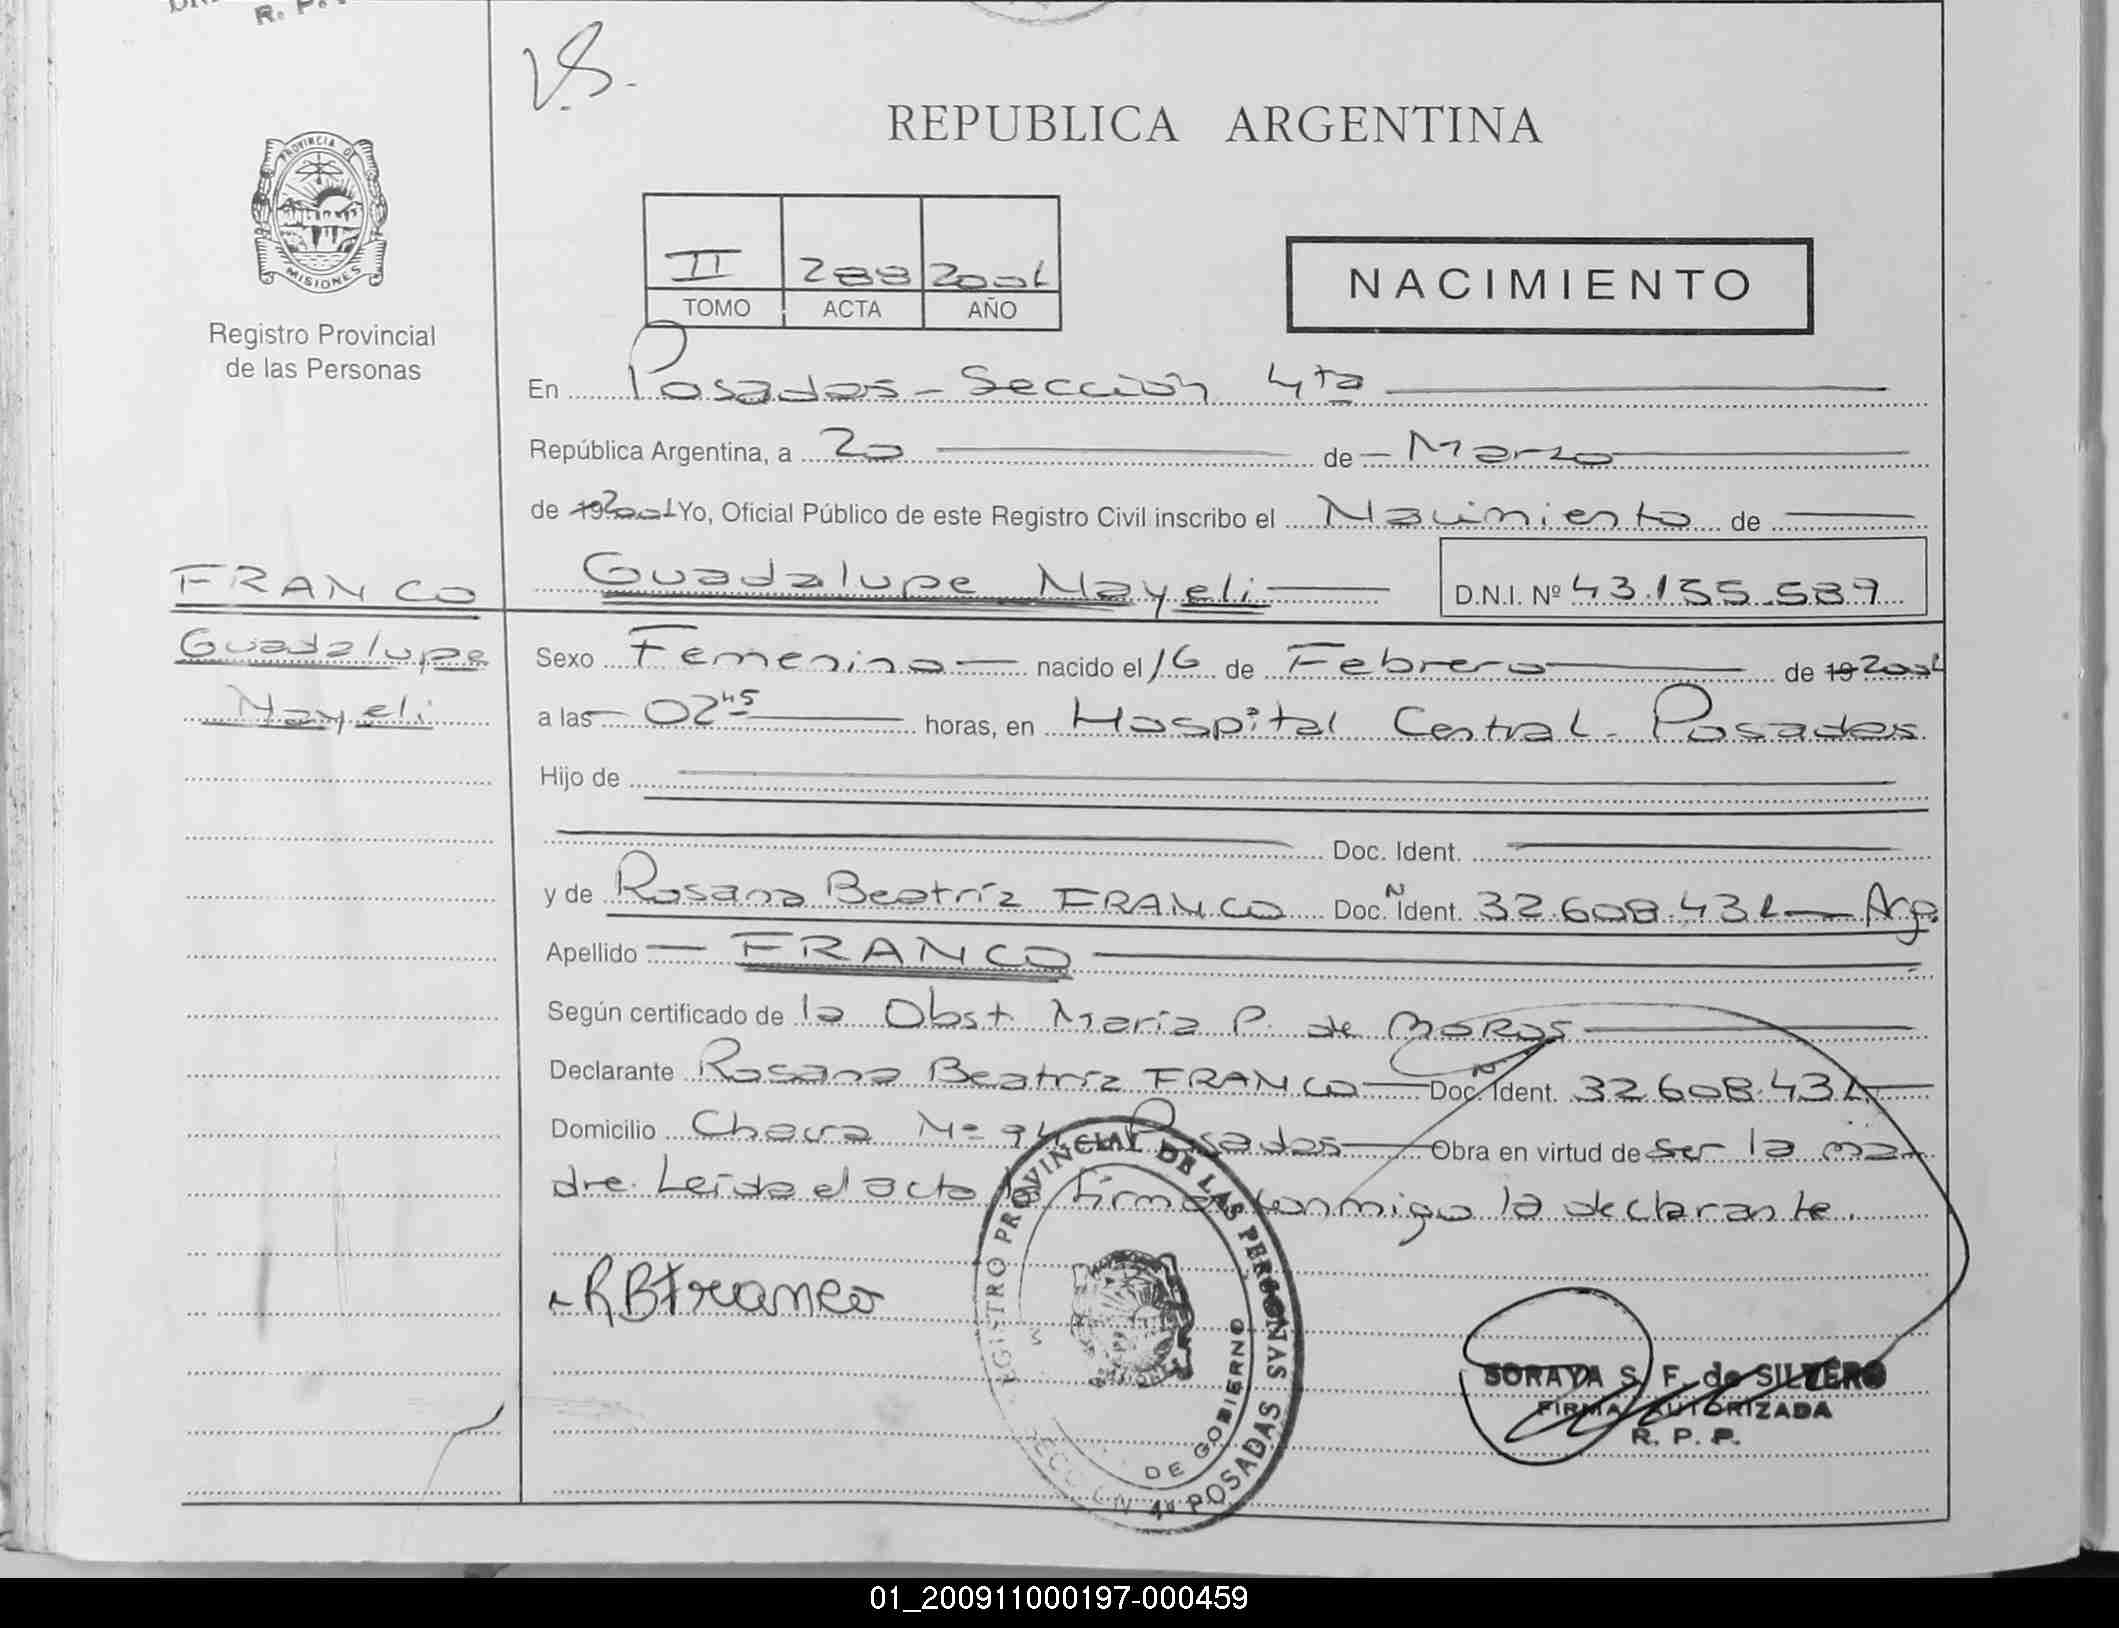 R. P.
V.S.
REPUBLICA ARGENTINA
PROVINCIA DE
MISIONES
Registro Provincial
de las Personas
II 288 2001
TOMO ACTA AÑO
NACIMIENTO
En Posadas - Sección 4ta
República Argentina, a 20 de Marzo
de 19 2001 Yo, Oficial Público de este Registro Civil inscribo el Nacimiento de
FRANCO
Guadalupe Nayeli D.N.I. Nº 43.155.589
Guadalupe
Nayeli
Sexo Femenino nacido el 16 de Febrero de 19 2001
a las 02 45 horas, en Hospital Central - Posadas
Hijo de
Doc. Ident.
y de Rosana Beatríz FRANCO Doc. N Ident. 32.608.431 Arg.
Apellido FRANCO
Según certificado de la Obst María P. de
Declarante Rosana Beatríz FRANCO Doc. N Ident. 32.608.431
Domicilio Chacra Nº Posadas Obra en virtud de ser la ma
dre. Leída el acta la firma conmigo la declarante.
RBFranco
REGISTRO PROVINCIAL DE LAS PERSONAS
DE GOBIERNO
4ª POSADAS
SORAYA S. F. de SILVERO
FIRMA AUTORIZADA
R. P. P.
01_200911000197-000459